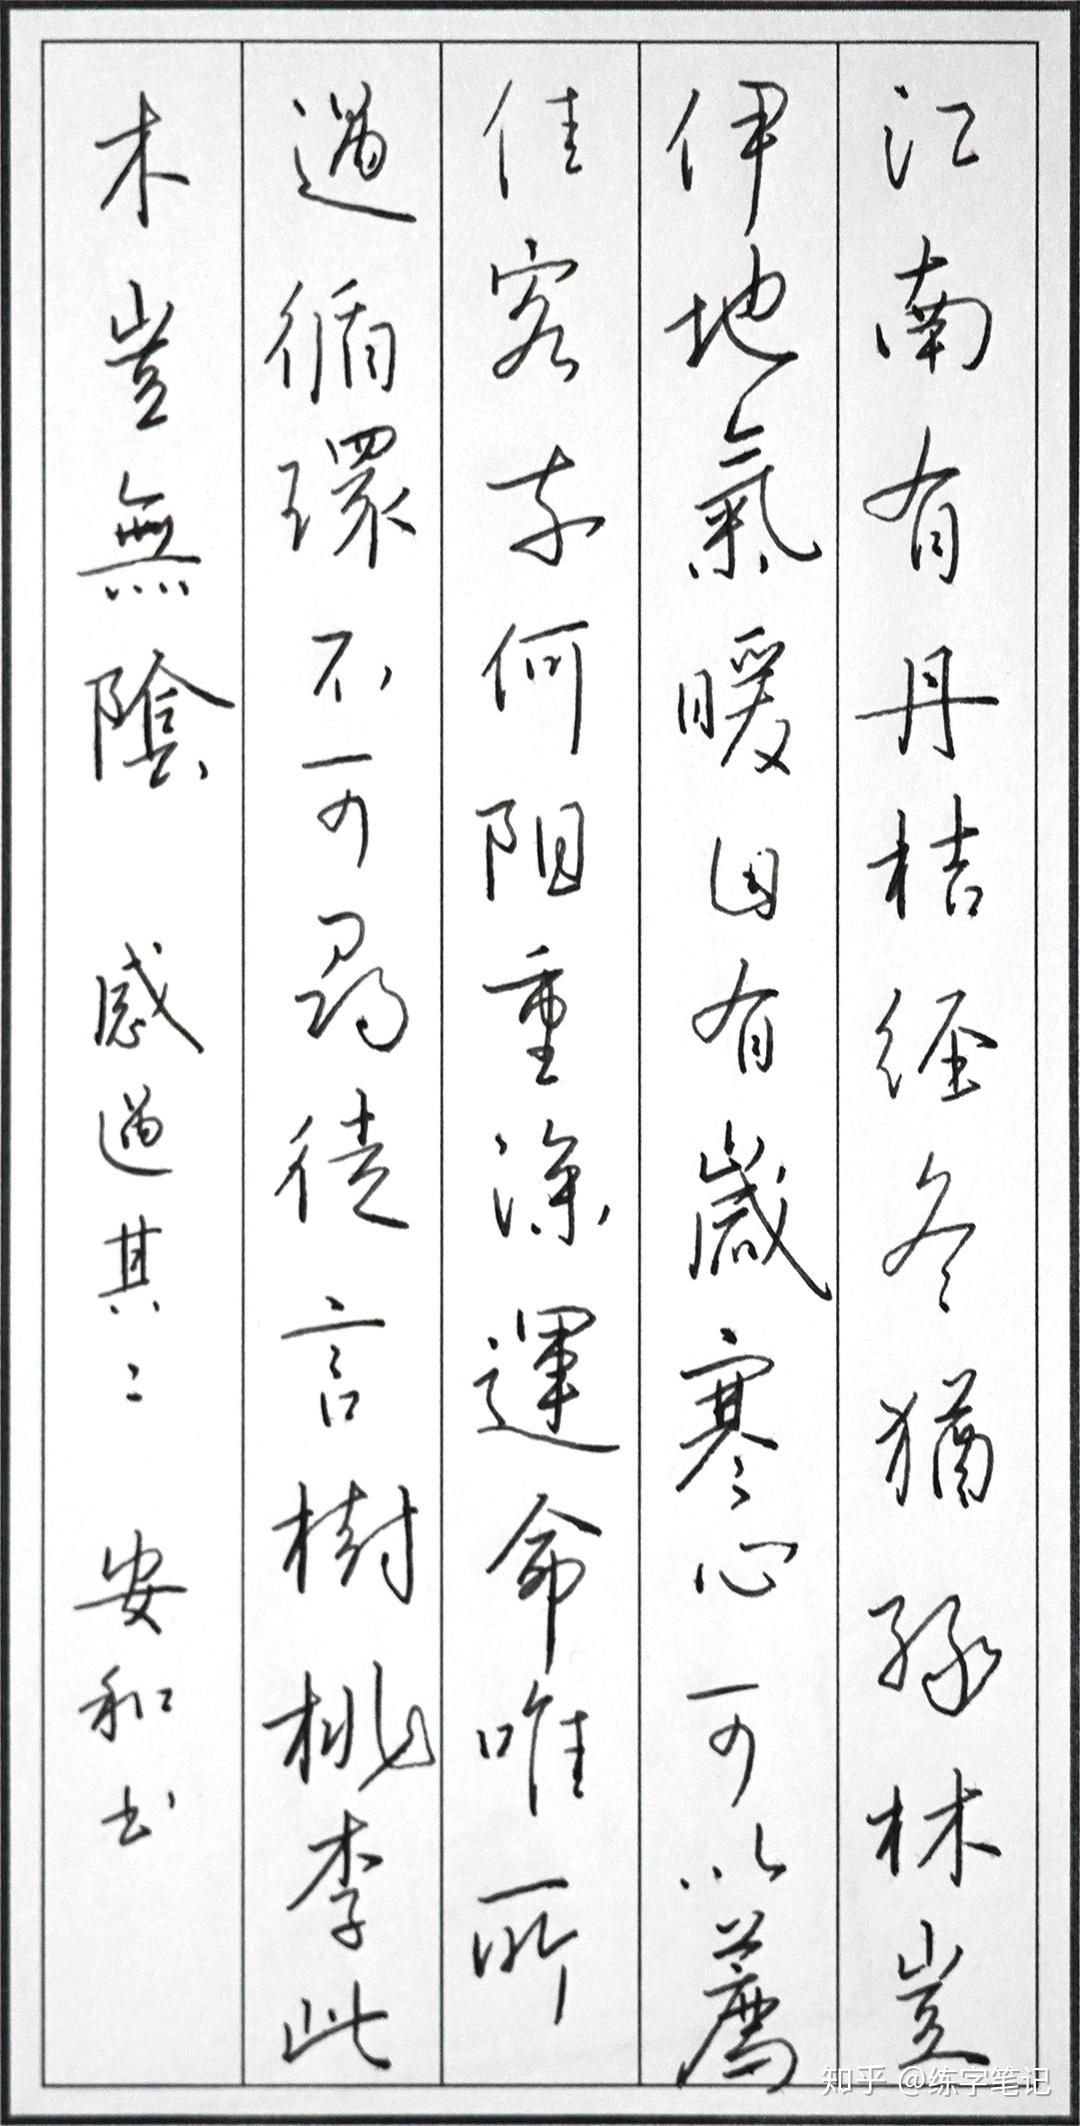 江南有丹桔经冬猶绿林豈
伊地氣暖自有歲寒心可以薦
佳客奈何阻重深運命唯所
遇循環不可尋徒言樹桃李此
木豈無陰 感遇其二 安和书
知乎 @练字笔记